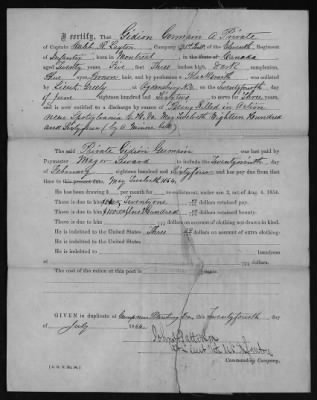 I certify, That Gideon Germain a Private
of Captain Walt. R. Layton Company of the Eleventh Regiment
of Infantry born in Montreal, in the State of Canada
aged Twenty years, Five feet Three inches, Dark complexion,
Blue eyes, Brown hair, and by profession a Blacksmith was enlisted
by Lieut. Greely at Ogdensburg N.Y. on the Twentyfourth day
of June eighteen hundred and Sixtytwo to serve for Three years,
and is now entitled to a discharge by reason of Being Killed in Action
near Spotsylvania C. H. Va. May Twelfth Eighteen Hundred
and Sixtyfour (by a Minnie ball)
The said Private Gideon Germain was last paid by
Paymaster Major Seward to include the Twentyninth day
of February eighteen hundred and Sixtyfour, and has pay due from that
time to May Twelfth 1864.
He has been drawing $ per month for re-enlistment, under sec 2, act of Aug. 4, 1854.
There is due to him Twenty one dollars retained pay.
There is due to him Hundred dollars retained bounty.
There is due to him dollars on account of clothing not drawn in kind.
He is indebted to the United States Three dollars on account of extra clothing.
He is indebted to the United States
He is indebted to laundress
at dollars.
The cost of the ration at this post is
GIVEN in duplicate at this Twentyfourth day
of July 1864.
Commanding Company.